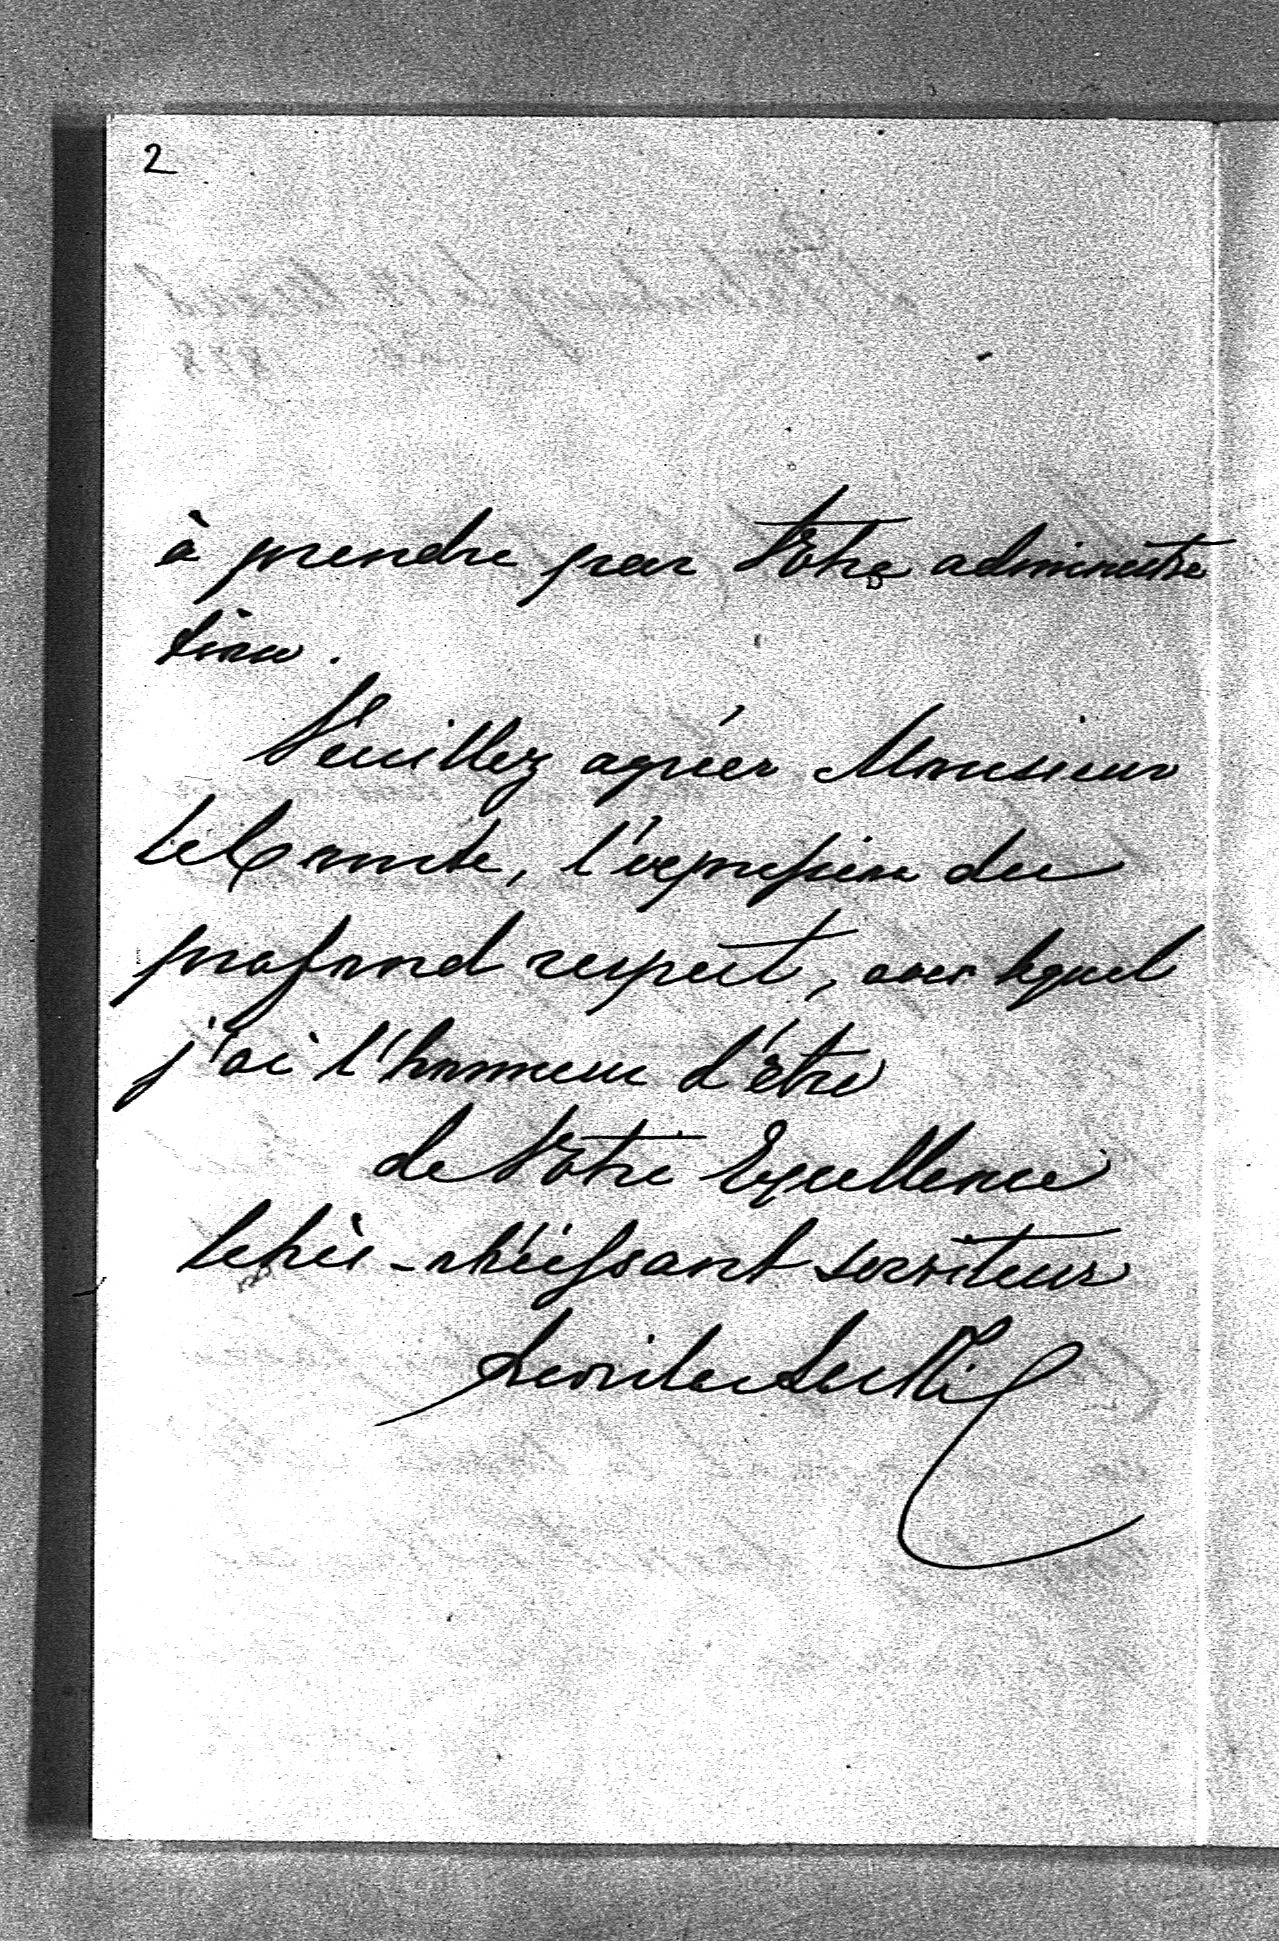 2
à prendre par Votre administra
tion.
Veuillez agréer Monsieur
le Comte, l'expression du
profond respect, avec lequel
j'ai l'honneur d'être
de Votre Excellence
le très-obéissant serviteur